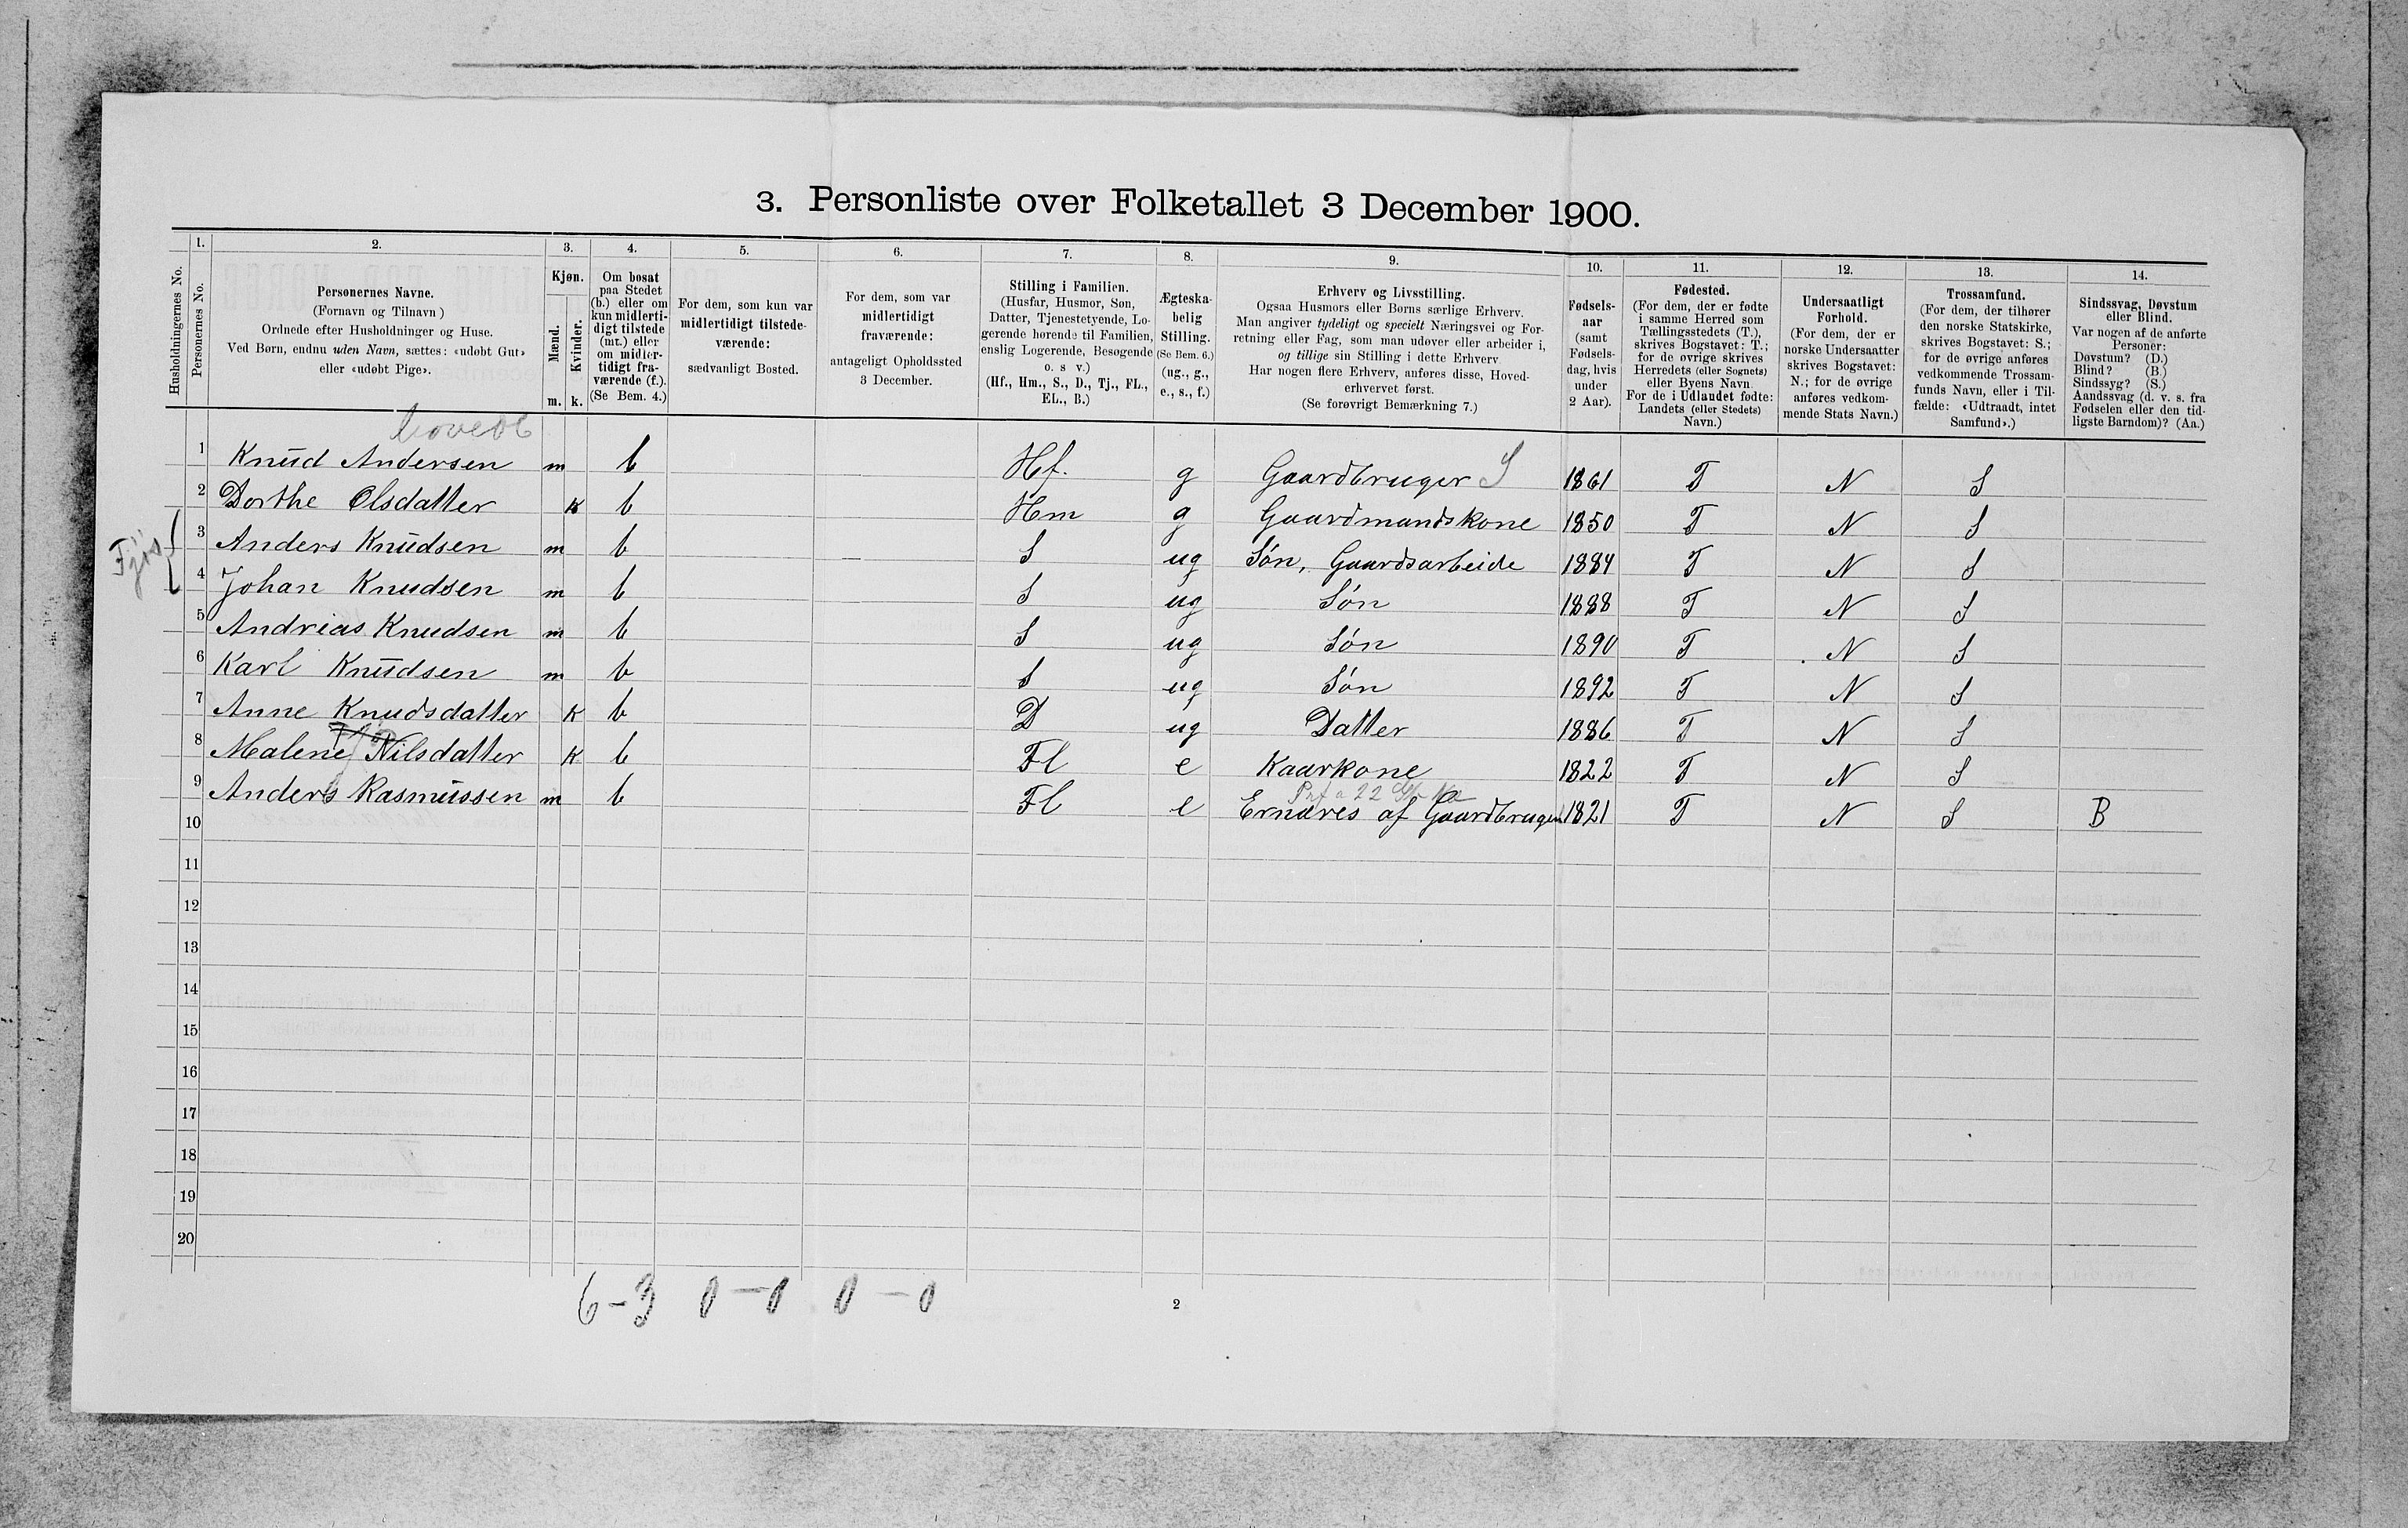 3. Personliste over Folketallet 3 December 1900.
1. 2. 3. 4. 5. 6. 7. 8. 9. 10. 11. 12. 13. 14.
Husholdningernes No.
Personernes No.
Personernes Navne.
(Fornavn og Tilnavn)
Ordnede efter Husholdninger og Huse.
Ved Børn, endnu uden Navn, sættes: «udøbt Gut»
eller «udøbt Pige».
Kjøn.
Mænd.
Kvinder.
m. k.
Om bosat
paa Stedet
(b.) eller om
kun midlerti-
digt tilstede
(mt.) eller
om midler-
tidigt fra-
værende (f.).
(Se Bem. 4.)
For dem, som kun var
midlertidigt tilstede-
værende:
sædvanligt Bosted.
For dem, som var
midlertidigt
fraværende:
antageligt Opholdssted
3 December.
Stilling i Familien.
(Husfar, Husmor, Søn,
Datter, Tjenestetyende, Lo-
gerende hørende til Familien,
enslig Logerende, Besøgende
o. s v.)
(Hf., Hm., S., D., Tj., FL.,
EL., B.)
Ægteska-
belig
Stilling.
(Se Bem. 6.)
(ug., g.,
e., s., f.)
Erhverv og Livsstilling.
Ogsaa Husmors eller Børns særlige Erhverv.
Man angiver tydeligt og specielt Næringsvei og For-
retning eller Fag, som man udøver eller arbeider i,
og tillige sin Stilling i dette Erhverv
Har nogen flere Erhverv, anføres disse, Hoved-
erhvervet først.
(Se forøvrigt Bemærkning 7.)
Fødsels-
aar
(samt
Fødsels-
dag, hvis
under
2 Aar).
Fødested.
(For dem, der er fødte
i samme Herred som
Tællingsstedets (T.),
skrives Bogstavet: T.;
for de øvrige skrives
Herredets (eller Sognets)
eller Byens Navn
For de i Udlandet fødte:
Landets (eller Stedets)
Navn.)
Undersaatligt
Forhold.
(For dem, der er
norske Undersaatter
skrives Bogstavet:
N.; for de øvrige
anføres vedkom-
mende Stats Navn.)
Trossamfund.
(For dem, der tilhører
den norske Statskirke,
skrives Bogstavet: S.;
for de øvrige anføres
vedkommende Trossam-
funds Navn, eller i Til-
fælde: «Udtraadt, intet
Samfund».)
Sindssvag, Døvstum
eller Blind.
Var nogen af de anførte
Personer:
Døvstum? (D.)
Blind? (B.)
Sindssyg? (S.)
Aandssvag (d. v. s. fra
Fødselen eller den tid-
ligste Barndom)? (Aa.)
1 Knud Andersen m b Hf. g Gaardbruger S 1861 T N S
2 Dorthe Olsdatter k b Hm g Gaardmandskone 1850 T N S
3 Anders Knudsen m b S ug Søn, Gaardsarbeide 1884 T N S
4 Johan Knudsen m b S ug Søn 1888 T N S
5 Andrias Knudsen m b S ug Søn 1890 T N S
6 Karl Knudsen m b S ug Søn 1892 T N S
7 Anne Knudsdatter k b D ug Datter 1886 T N S
8 Malene Nilsdatter k b Fl e Kaarkone 1822 T N S
9 Anders Rasmussen m b Fl e Ernæres af Gaardbruger 1821 T N S B
10
11
12
13
14
15
16
17
18
19
20
6-3 0-0 0-0
2